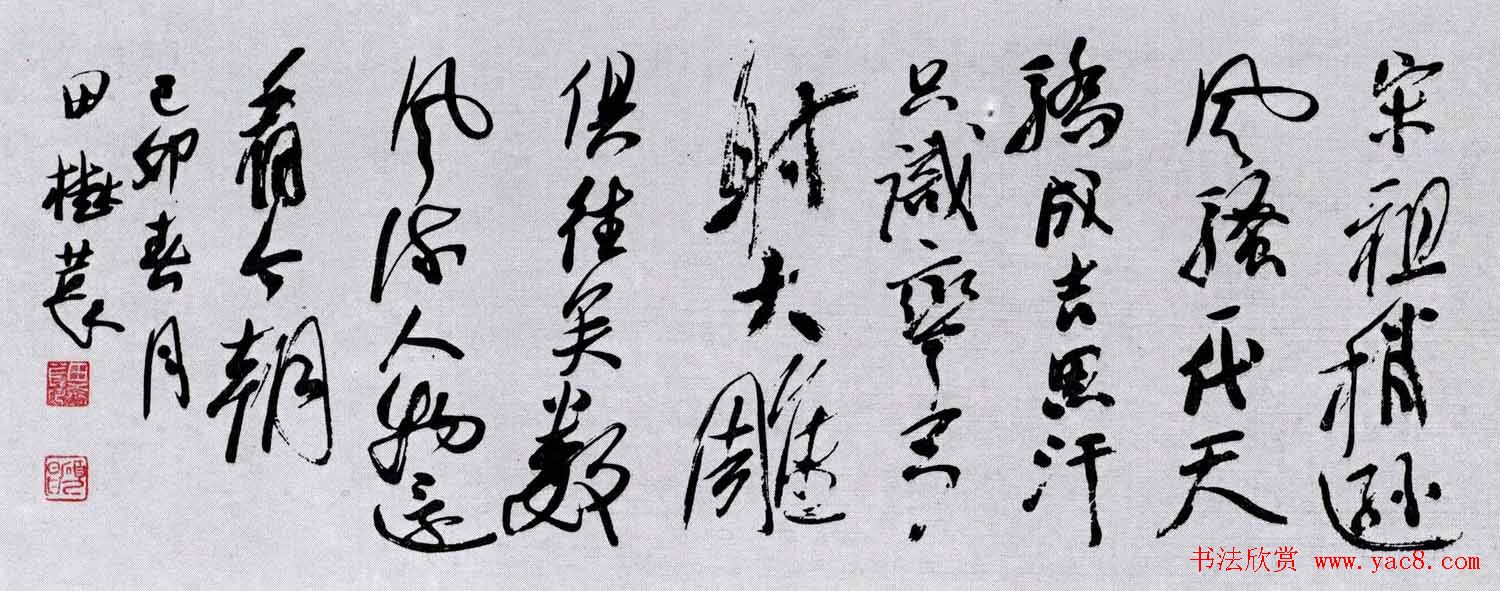 宋祖稍遜
风騷一代天
驕成吉思汗
只識彎弓
射大雕
俱往矣數
风流人物還
看今朝
己卯春月
田樹萇
书法欣赏 www.yac8.com